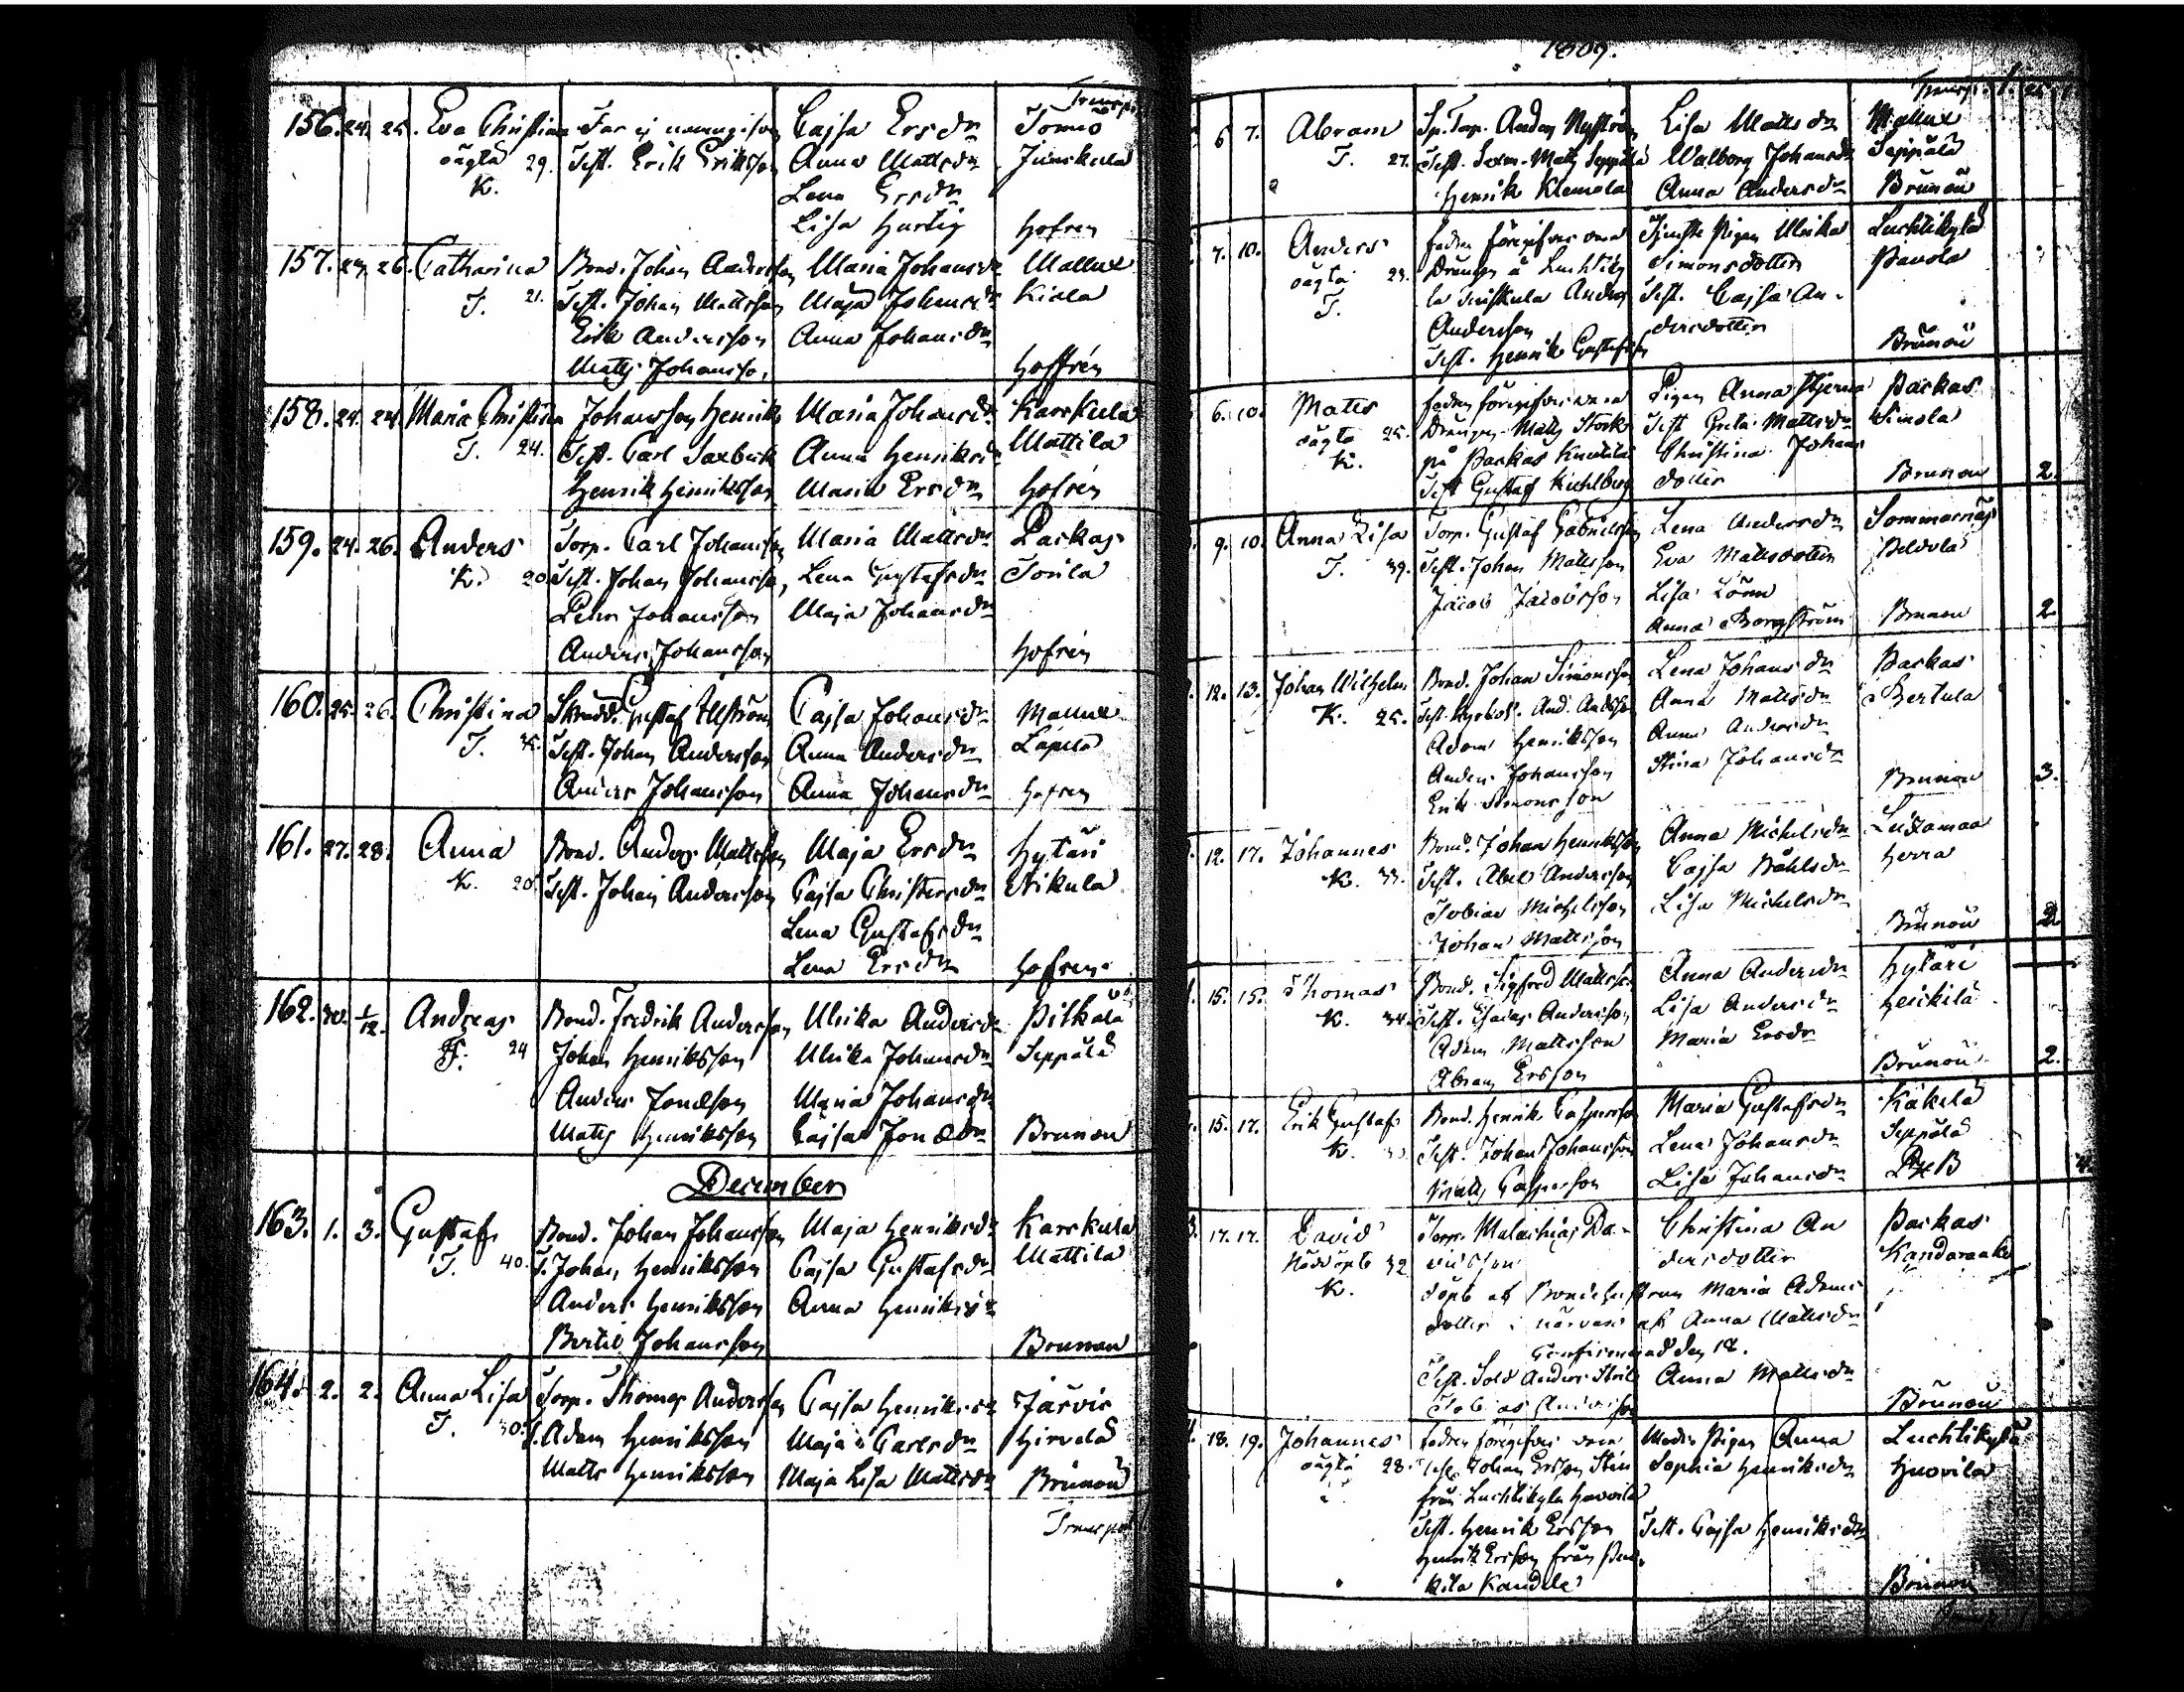 Transp.
156. 24. 25. Eva Christina Far ej namngifven Cajsa Ersdr Tormo
oägta 29. Test. Erik Eriksson Anna Mattsdr Junskula
K. Lena Ersdr
Lisa Hartig Hofren
157. 24. 26. Catharina Bond. Johan Andersson Maria Johansdr Mallux
T. 21. Test. Johan Mattsson Maja Johansdr Kiala
Erik Andersson Anna Johansdr
Matts Johansso, Hoffrén
158. 24. 24. Maria Christina Johansson Henrik Maria Johansdr Karskula
T. 24. Test. Carl Saxbeck Anna Henriksdr Mattila
Henrik Henriksson Maria Ersdr Hofrén
159. 24. 26. Anders Torp. Carl Johansson Maria Mattsdr Packas
K. 20. Test. Johan Johansso, Lena Gustafsdr Torila
Petter Johansson Maja Johansdr
Anders Johansson Hofrén
160. 25. 26. Christina Skrädd. Gustaf Allström Cajsa Johansdr Mallux
T. Test. Johan Andersson Anna Andersdr Lapila
Anders Johansson Anna Johansdr Hofren
161. 27. 28. Anna Bond. Anders Mattsson Maja Ersdr Hytäri
K. 20. Test. Johan Andersson Cajsa Christersdr Nikula
Lena Gustafsdr
Lena Ersdr Hofren.
162. 30. 1/12. Andreas Bond. Fredrik Andersson Ulrika Andersdr Pitkälä
T. 24 Johan Henriksson Ulrika Johansdr Seppälä
Anders Jonæson Maria Johansdr
Matts Henriksson Cajsa Jonædr Brunou
December
163. 1. 3. Gustaf Bond. Johan Johansson Maja Henriksdr Karskula
T. 40. T. Johan Henriksson Cajsa Gustafsdr Mattila
Anders Henriksson Anna Henriksdr
Bertil Johansson Brunou
164. 2. 2. Anna Lisa Torp. Thomas Andersson Cajsa Henriksdr Järvis
T. 30. T. Adam Henriksson Maja Carlsdr Hirvelä
Matts Henriksson Maja Lisa Mattsdr Brunou
Transport
1809.
Transp.
6 7. Abram Sp. Torp. Anders Nyström Lisa Mattsdr Mallux
T. 27. Test. Sexm. Matts Seppälä Walborg Johansdr Seppälä
Henrik Klemola Anna Andersdr Brunou
7. 10. Anders fadren föregifves vara Tjenste Pigan Ulrika Luchtikylä
oägta 23. Drängen å Luchtiky Simonsdotter Pavola
T. la Junskula Anders Test. Cajsa An-
Andersson dersdotter
Test. Henrik Gustafson Brunou
6. 10. Matts fadren föregifves vara Pigan Anna Stjerna Packas
oägta 25. Drängen Matts Stock Test Greta Mattsdr Simola
K. på Packas Knuutila Christina Johans
Test Gustaf Kiehlberg dotter Brunou 2.
9. 10. Anna Lisa Torp. Gustaf Gabrielsson Lena Andersdr Sommarnäs
T. 39. Test. Johan Mattsson Eva Mattsdotter Peldola
Jacob Jacobsson Lisa Lönn
Anna Borgström Brunou 2
12. 13. Johan Wilhelm Bond. Johan Simonsson Lena Johansdr Packas
K. 25. Test. Kyrkov. And. Andsson Anna Mattsdr Bertula
Adam Henriksson Anna Andersdr
Anders Johansson Stina Johansdr Brunou 3.
Erik Simonsson
12. 17. Johannes Bond. Johan Henriksson Anna Michelsdr Leidamaa
K. 33. Test. Abel Andersson Cajsa Påhlsdr Herra
Tobias Michelsson Lisa Michelsdr
Johan Mattsson Brunou 2
15. 15. Thomas Bond. Sigfred Mattsson Anna Andersdr Hytäri
K. 34. Test. Esaias Andersson Lisa Andersdr Heickilä
Adam Mattsson Maria Ersdr
Abram Ersson Brunou 2.
15. 17. Erik Gustaf Bond. Henrik Caspersson Maria Gustafsdr Käkelä
K. Test. Johan Johansson Lena Johansdr Seppälä
Matts Caspersson Lisa Johansdr
17. 17. David Torp. Malachias Da- Christina An Packas
Nöddöpt 32 vidsson dersdotter Kandaraake
K. döpt af Bondehustrun Maria Adams
dotter i närvaro af Anna Mattsdr
Confirmerad den 18.
Test. Sold. Anders Anna Mattsdr
Tobias Andersson Brunou
18. 19. Johannes fadren föregifves vara Modren Pigan Anna Luchtikylä
oägta 28. Johan Ersson Sophia Henriksdr Huovila
från Luchtikylä Huovila
Test. Henrik Ersson Test. Cajsa Henriksdr
Henrik Ersson från Pen-
kila Kandela Brunou